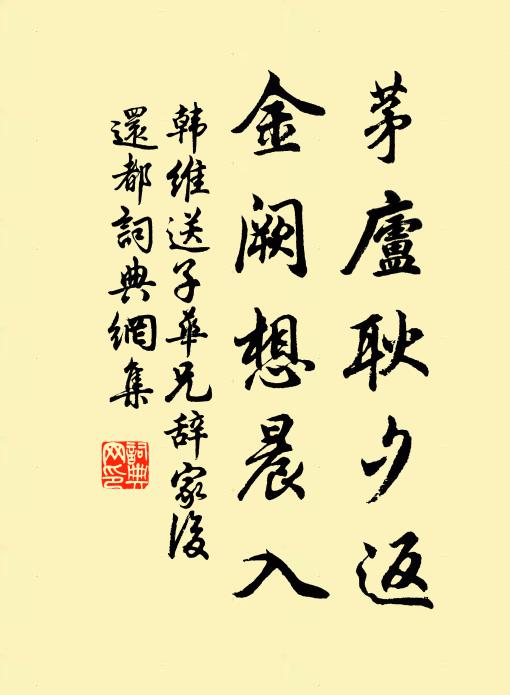 茅廬耿夕返
金闕想晨入
韩维送子華兄辞家後
還都詞典網集
詞典網印